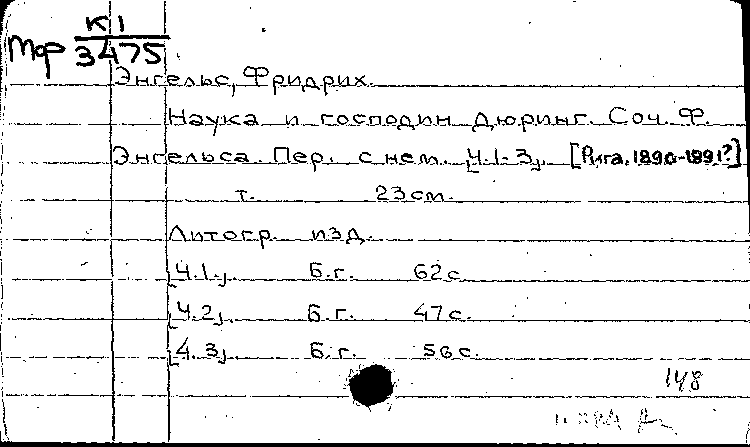 К1
Мф 3475
Энгельс, Фридрих.
Наука и господин Дюринг. Соч. Ф.
Энгельса. Пер. с нем. [Ч.1-3]. [Рига, 1890-1891?]
т. 23 см.
Литогр. изд.
[Ч.1.] Б.г. 62 с.
[Ч.2]. Б.г. 47 с.
[Ч.3]. Б.г. 56 с.
148